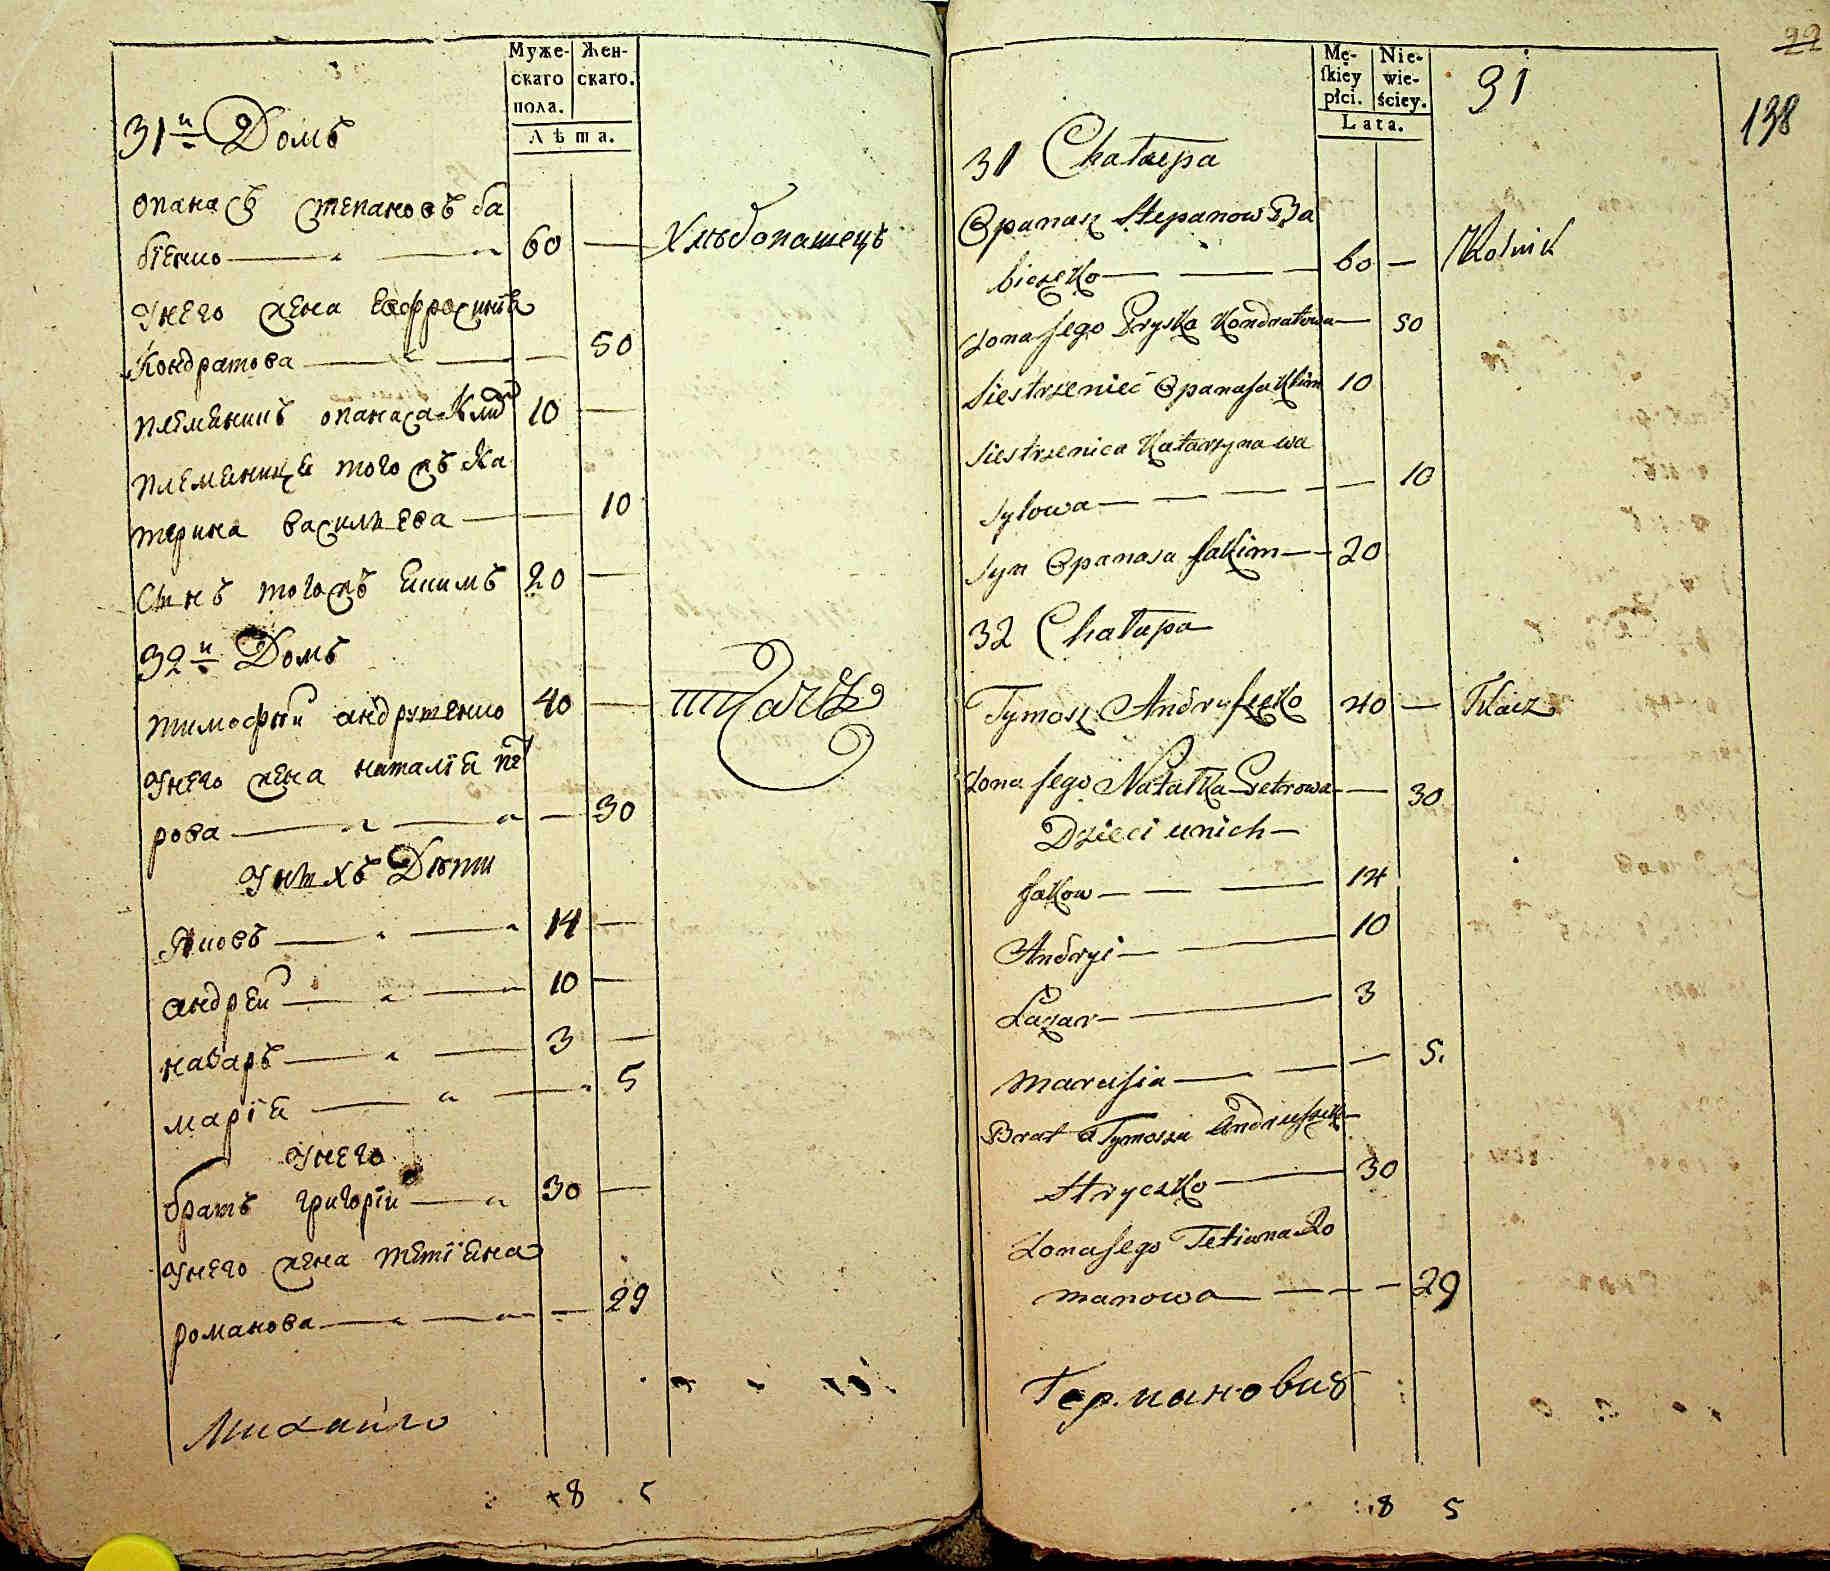 Муже-
скаго
пола.
Жен-
скаго.
Лѣта.
31й Домъ
Опанасъ степановъ ба
бїенко 60 — Хлѣбопашецъ
Унего жена Евфросинїя
Кондратова — 50
племеникъ опанаса 10 —
племеница тогожъ Ка
терина васильева — 10
Сынъ тогожъ Екимъ 20 —
32й Домъ
тимофѣй андрушенко 40 — ткачъ
Унего жена наталїя пет
рова — 30
Унихъ Дѣти
Яковъ 14 —
андрей 10 —
назаръ 3 —
марїя 5
Унего
братъ григорїи 30 —
Унего жена тетїяна
романова — 29
Михайло
8 5
22
138
Mę-
ſkiey
płci.
Nie-
wie-
ściey.
Lata.
31
31 Chałupa
Opanasz Stepanow Ba
bieńko 60 — Rolnik
Żona Jego Pryska Kondratowa — 50
Siestrzeniec Opanasa 10
Siestrzenica Katarzyna wa
sylowa — 10
Syn Opanasa Jakim — 20
32 Chałupa
Tymosz Andruszko 40 — Tkacz
Żona Jego Natałka Petrowa — 30
Dzieci unich —
Jakow — 14
Andryi — 10
Łazar — 3
Marusia — 5.
Brat Tymosza Andruszko
Hryczko — 30
Żona Jego Tetiana Ro
manowa — 29
Германович
8 5